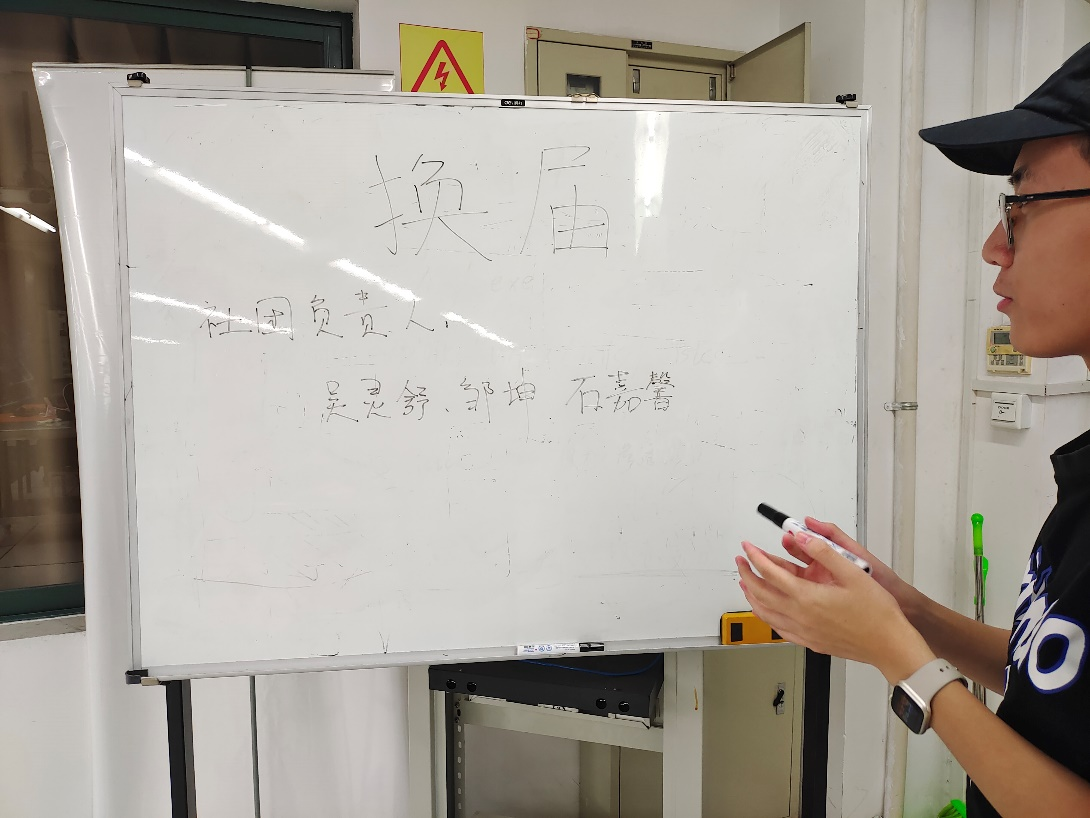 换届
社团负责人、
吴灵舒、邹坤 石嘉馨